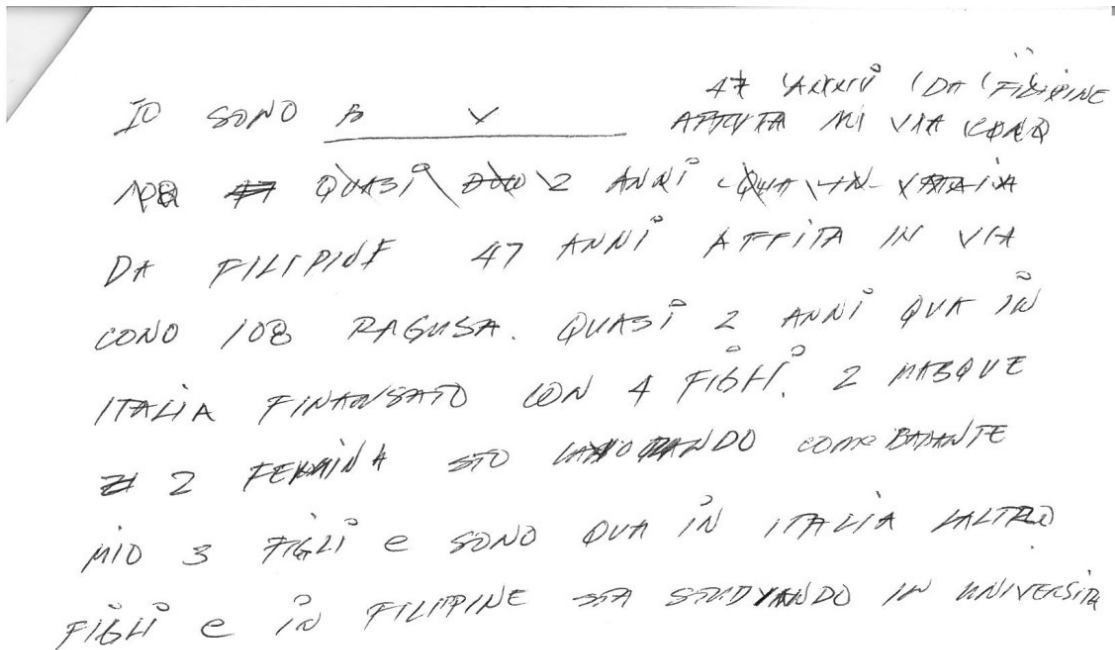 47 ANNI DA FILIPINE
IO SONO B V AFFITTA IN VIA CONO
108 47 QUASI DUE 2 ANNI QUA IN ITALIA
DA FILIPINE 47 ANNI AFFITA IN VIA
CONO 108 RAGUSA. QUASI 2 ANNI QUA IN
ITALIA FINANSATO CON 4 FIGLI. 2 MASQUE
2 FEMMINA STO LAVORANDO COME BADANTE
MIO 3 FIGLI e SONO QUA IN ITALIA LALTRO
FIGLI e IN FILIPPINE STA STUDYANDO IN UNIVERSITA